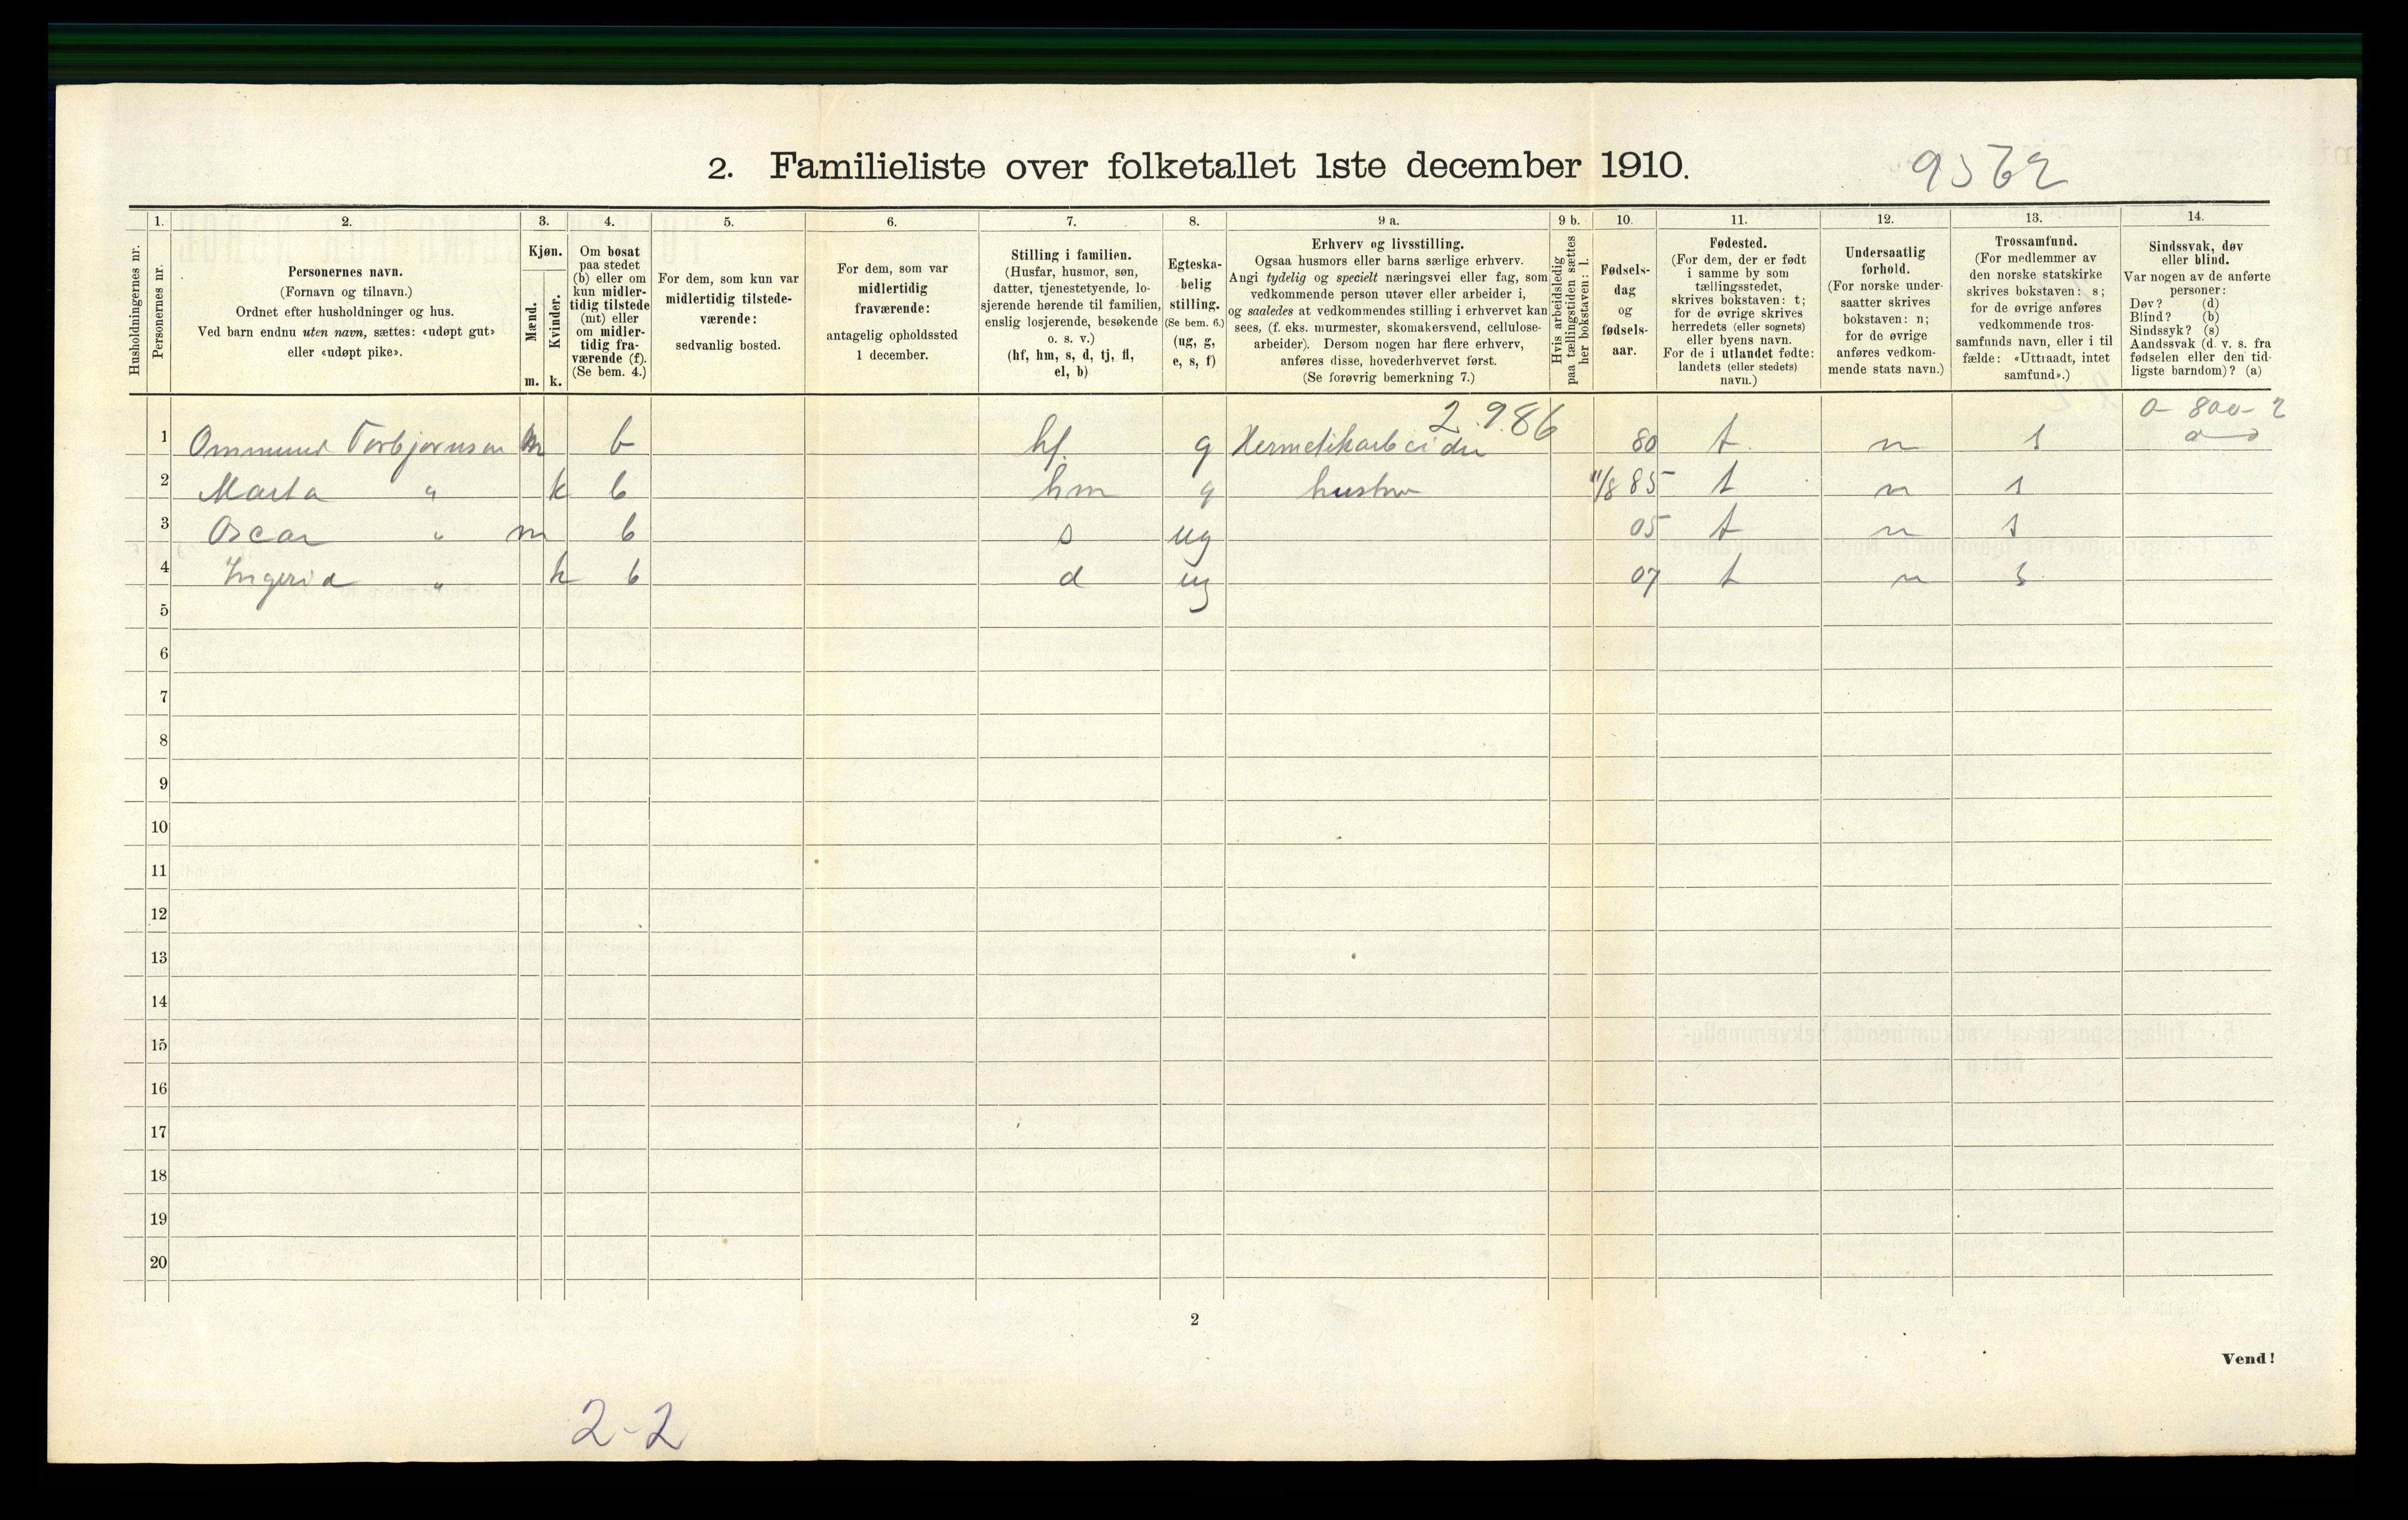 2. Familieliste over folketallet 1ste december 1910.
1. 2. 3. 4. 5. 6. 7. 8. 9 a. 9 b. 10. 11. 12. 13. 14.
Husholdningernes nr.
Personernes nr.
Personernes navn.
(Fornavn og tilnavn.)
Ordnet efter husholdninger og hus.
Ved barn endnu uten navn, sættes: «udøpt gut»
eller «udøpt pike».
Kjøn.
Mænd.
Kvinder.
m. k.
Om bosat
paa stedet
(b) eller om
kun midler-
tidig tilstede
(mt) eller
om midler-
tidig fra-
værende (f).
(Se bem. 4.)
For dem, som kun var
midlertidig tilstede-
værende:
sedvanlig bosted.
For dem, som var
midlertidig
fraværende:
antagelig opholdssted
1 december.
Stilling i familien.
(Husfar, husmor, søn,
datter, tjenestetyende, lo-
sjerende hørende til familien,
enslig losjerende, besøkende
o. s. v.)
(hf, hm, s, d, tj, fl,
el, b)
Egteska-
belig
stilling.
(Se bem. 6.)
(ug, g,
e, s, f)
Erhverv og livsstilling.
Ogsaa husmors eller barns særlige erhverv.
Angi tydelig og specielt næringsvei eller fag, som
vedkommende person utøver eller arbeider i,
og saaledes at vedkommendes stilling i erhvervet kan
sees, (f. eks. murmester, skomakersvend, cellulose-
arbeider). Dersom nogen har flere erhverv,
anføres disse, hovederhvervet først.
(Se forøvrig bemerkning 7.)
Hvis arbeidsledig
paa tællingstiden sættes
her bokstaven: l.
Fødsels-
dag
og
fødsels-
aar.
Fødested.
(For dem, der er født
i samme by som
tællingsstedet,
skrives bokstaven: t;
for de øvrige skrives
herredets (eller sognets)
eller byens navn.
For de i utlandet fødte:
landets (eller stedets)
navn.)
Undersaatlig
forhold.
(For norske under-
saatter skrives
bokstaven: n;
for de øvrige
anføres vedkom-
mende stats navn.)
Trossamfund.
(For medlemmer av
den norske statskirke
skrives bokstaven: s;
for de øvrige anføres
vedkommende tros-
samfunds navn, eller i til
fælde: «Uttraadt, intet
samfund».)
Sindssvak, døv
eller blind.
Var nogen av de anførte
personer:
Døv? (d)
Blind? (b)
Sindssyk? (s)
Aandssvak (d. v. s. fra
fødselen eller den tid-
ligste barndom)? (a)
2.9.86 0- 800- 2
1 Ommund Torbjørnsen m b hf. g Hermetikarbeider 80 t n s
2 Marta " k b hm g hustru 11/8 85 t n s
3 Oscar " m b s ug 05 t n s
4 Ingerid " k b d ug 07 t n s
5
6
7
8
9
10
11
12
13
14
15
16
17
18
19
20
2
Vend!
2-2